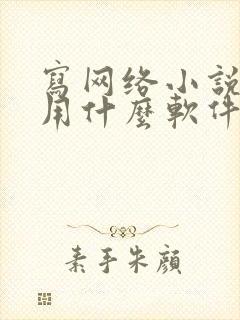 寫网络小說
用什麼軟件
素手朱顔